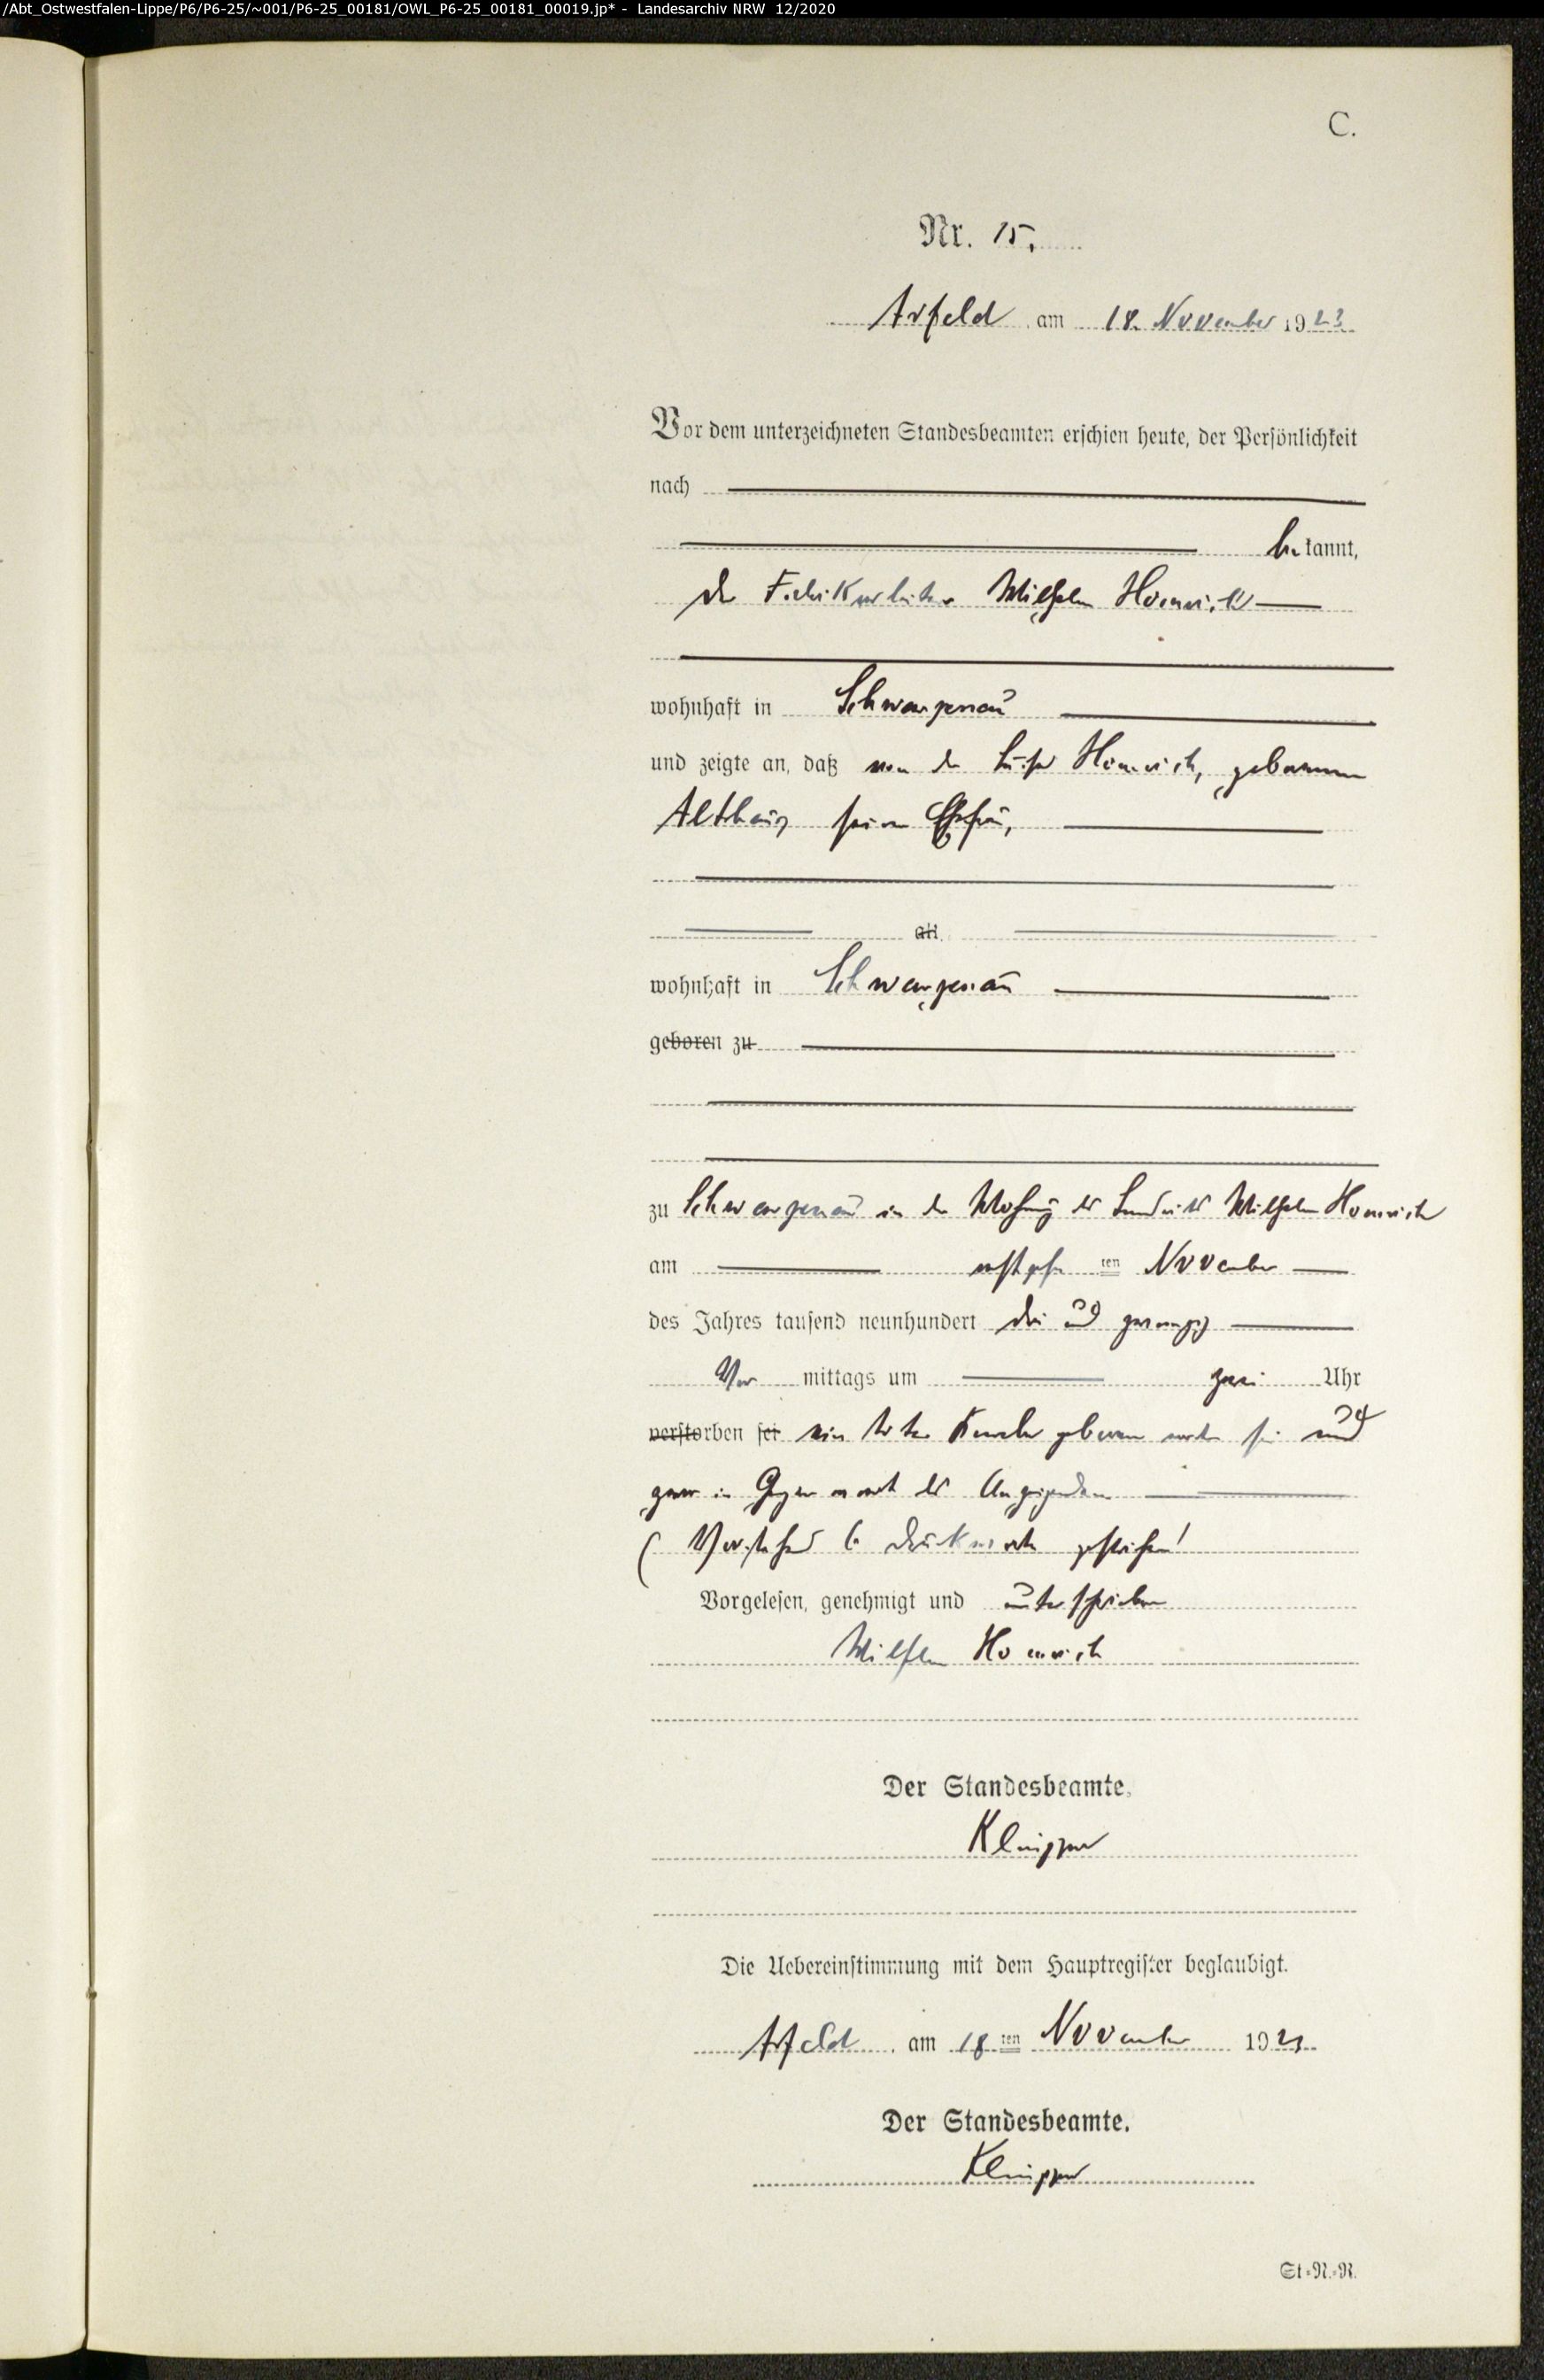 /Abt_Ostwestfalen-Lippe/P6/P6-25/~001/P6-25_00181/OWL_P6-25_00181_00019.jp* - Landesarchiv NRW 12/2020
C.
Nr. 15.
Arfeld, am 18. November 1923
Vor dem unterzeichneten Standesbeamten erschien heute, der Persönlichkeit
nach
bekannt,
der Fabrikarbeiter Wilhelm Homrich
wohnhaft in Schwarzenau
und zeigte an, daß von der Luise Homrich, geborenen
Althaus seiner Ehefrau,
alt
wohnhaft in Schwarzenau
geboren zu
zu Schwarzenau in der Wohnung des Landwirts Wilhelm Homrich
am achtzehnten November
des Jahres tausend neunhundert drei und zwanzig
Vor mittags um zwei Uhr
verstorben sei ein toter Knabe geboren worden sei und
zwar in Gegenwart des Anzeigenden
(Vorstehend 6 Druckworte gestrichen!
Vorgelesen, genehmigt und unterschrieben
Wilhelm Homrich
Der Standesbeamte,
Die Uebereinstimmung mit dem Hauptregister beglaubigt.
Arfeld, am 18 ten November 1923.
Der Standesbeamte.
St.-R.-N.